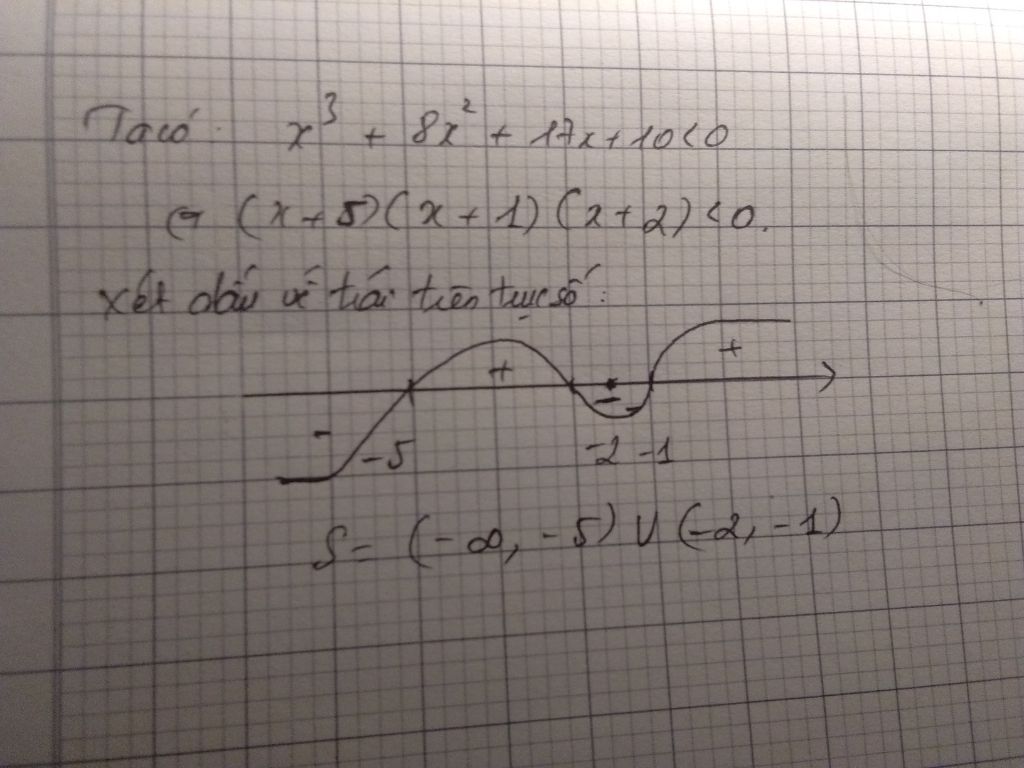 Ta có: x³ + 8x² + 17x + 10 < 0
⇔ (x + 5)(x + 1)(x + 2) < 0.
Xét dấu vế trái trên trục số:
- + - +
-5 -2 -1
S = (-∞, -5) ∪ (-2, -1)